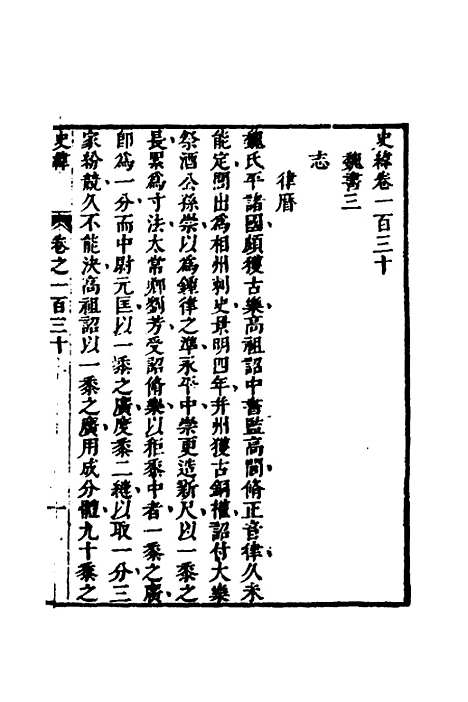 史緯卷一百三十
魏書三
志
律曆
魏氏平諸國頗獲古樂高祖詔中書監高閭脩正音律久未
能定閭出爲相州刺史景明四年并州獲古銅權詔付大樂
祭酒公孫崇以爲鍾律之準永平中崇更造新尺以一黍之
長累爲寸法太常卿劉芳受詔脩樂以秬黍中者一黍之廣
卽爲一分而中尉元匡以一黍之廣度黍二縫以取一分三
家紛競久不能決高祖詔以一黍之廣用成分體九十黍之
史緯
卷之一百三十
一